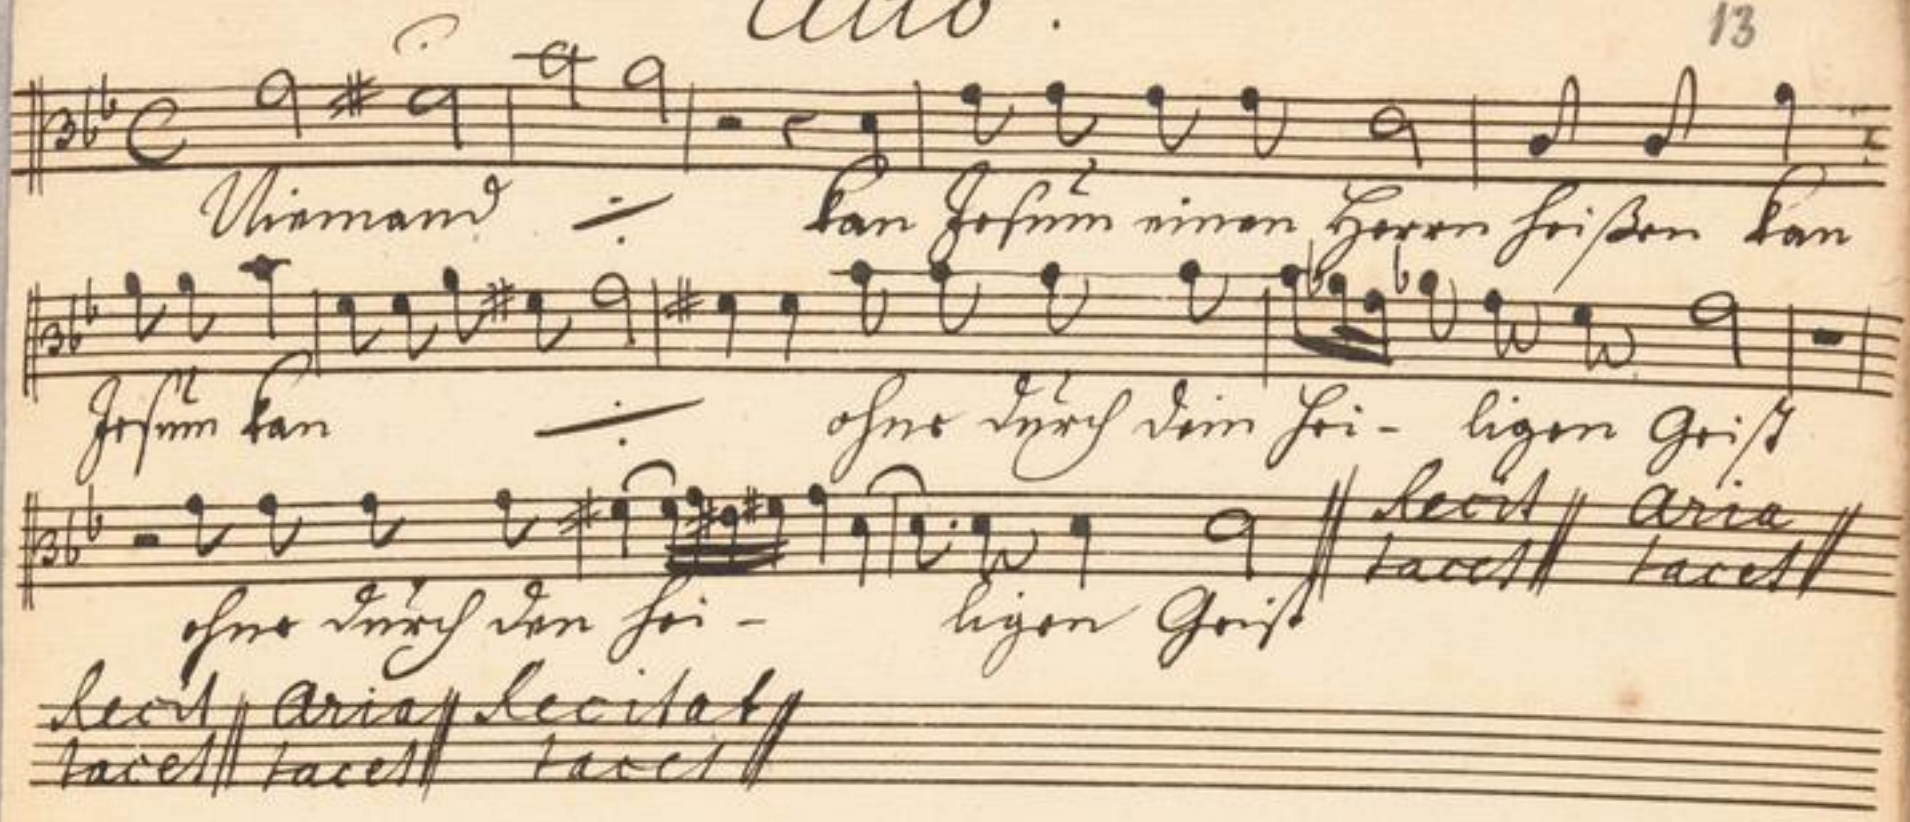 Alto.
13
Niemand ·/. kan Jesum einen Herrn heißen kan
Jesum kan ·/. ohne durch dein hei- ligen Geist
Recit Aria
tacet tacet
ohne durch den hei- ligen Geist
Recit Aria Recitat
tacet tacet tacet